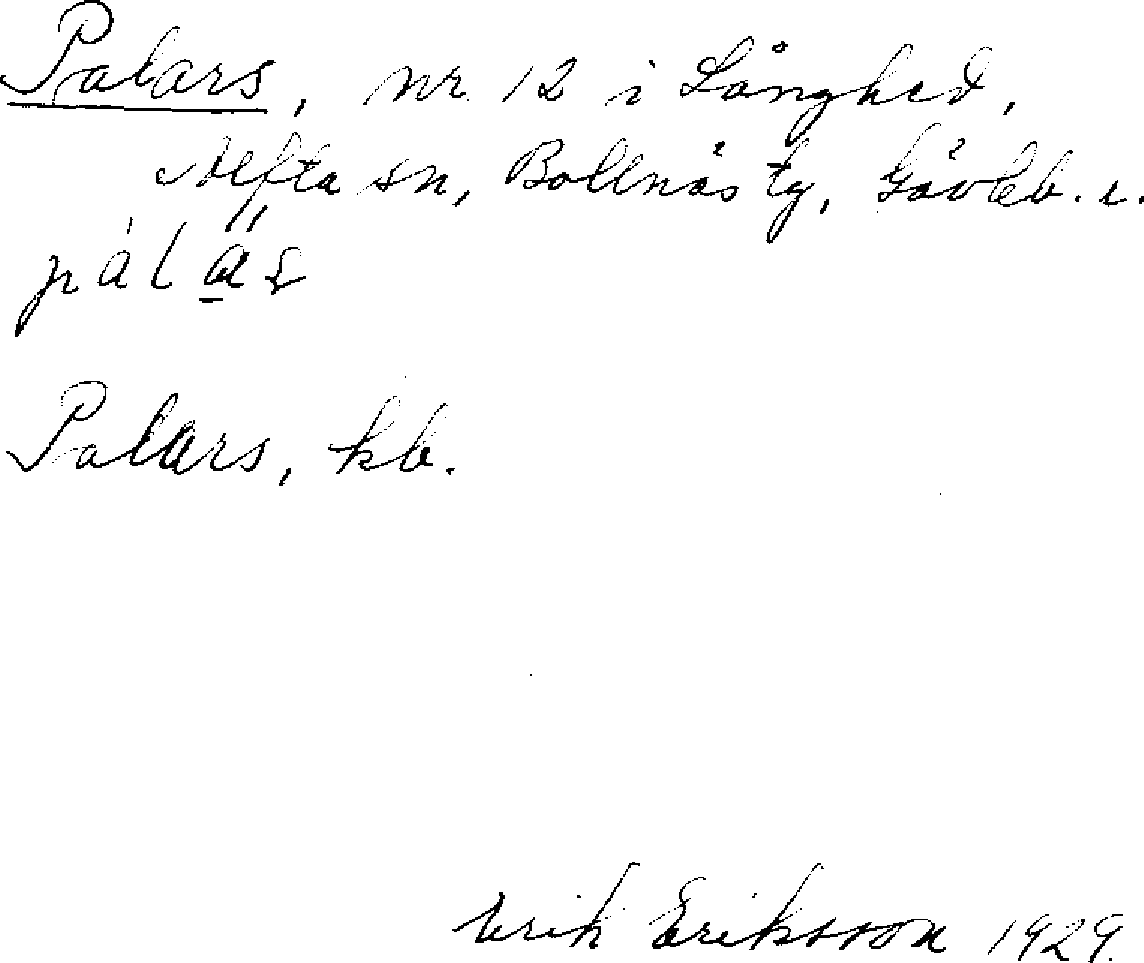 Palars, nr. 12 i Långhed,
Alfta sn, Bollnäs tg, Gävleb. l.
Palars, kb.
Erik Eriksson 1929.